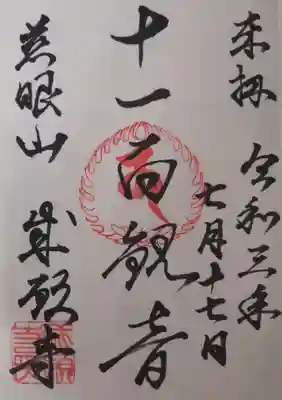 奉拝
令和三年
七月十七日
十一面観音
慈眼山
成願寺